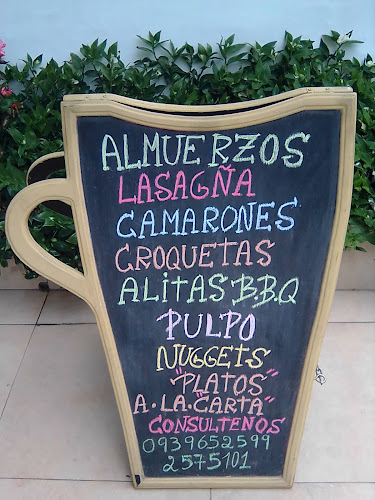 ALMUERZOS
LASAGÑA
CAMARONES
CROQUETAS
ALITAS B.B.Q
PULPO
NUGGETS
"PLATOS"
A.LA."CARTA"
CONSULTENOS
0939652599
2575101